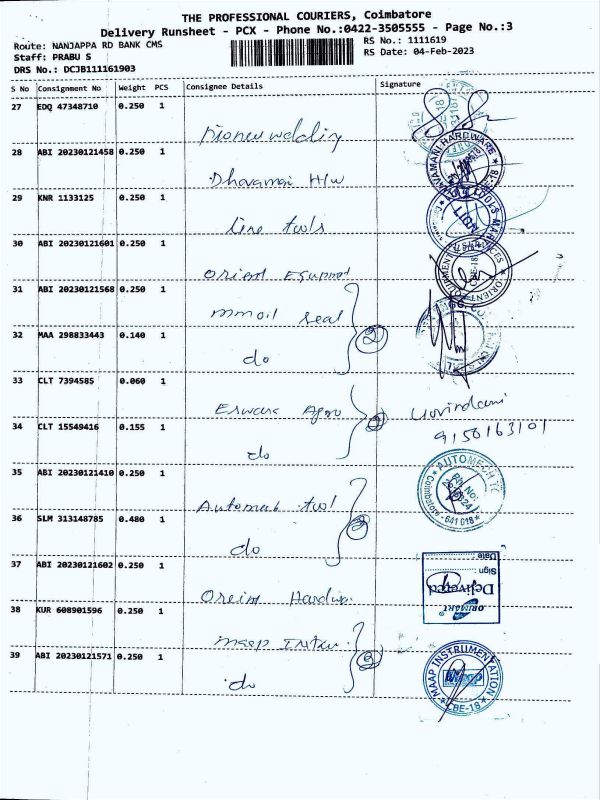 THE PROFESSIONAL COURIERS, Coimbatore
Delivery Runsheet - PCX - Phone No.:0422-3505555 - Page No.:3
Route: NANJAPPA RD BANK CMS
RS No.: 1111619
Staff: PRABU S
RS Date: 04-Feb-2023
DRS No.: DCJB111161903
S No Consignment No Weight PCS Consignee Details Signature
27 EDQ 47348710 0.250 1
Pioneer welding
28 ABI 20230121458 0.250 1
Dhavamai H/w
29 KNR 1133125 0.250 1
line tools
30 ABI 20230121601 0.250 1
Orient Equpment
31 ABI 20230121568 0.250 1
mmoil seal
32 MAA 298833443 0.140 1
do
2
33 CLT 7394585 0.060 1
Eswara Agro
34 CLT 15549416 0.155 1
do
9150163101
35 ABI 20230121410 0.250 1
Automech tool
AUTOMECH TC
Coimbatore - 641 018
36 SLM 313148785 0.480 1
do
37 ABI 20230121602 0.250 1
Oreint Hardw
Date
Sign
Delivered
ORIMART
38 KUR 608901596 0.250 1
maap Instru
39 ABI 20230121571 0.250 1
do
2
MAAP INSTRUMENTATION
CBE-18